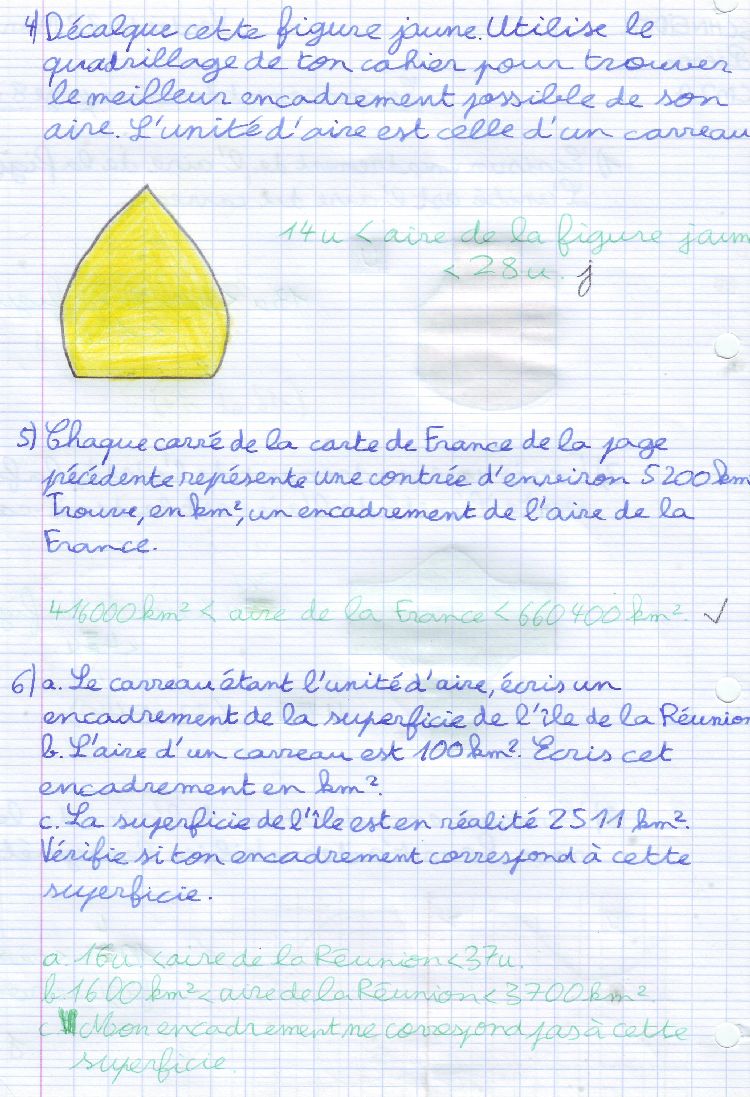 4) Décalque cette figure jaune. Utilise le
quadrillage de ton cahier pour trouver
le meilleur encadrement possible de son
aire. L'unité d'aire est celle d'un carreau
14u < aire de la figure jaun
< 28u. j
5) Chaque carré de la carte de France de la page
précédente représente une contrée d'environ 5200 km
Trouve, en km², un encadrement de l'aire de la
France.
416000 km² < aire de la France < 660400 km². ✓
6) a. Le carreau étant l'unité d'aire, écris un
encadrement de la superficie de l'île de la Réunion
b. L'aire d'un carreau est 100 km². Ecris cet
encadrement en km².
c. La superficie de l'île est en réalité 2511 km².
Vérifie si ton encadrement correspond à cette
superficie.
a. 16u. < aire de la Réunion < 37u.
b. 1600 km² < aire de la Réunion < 3700 km².
c. Mon encadrement ne correspond pas à cette
superficie.